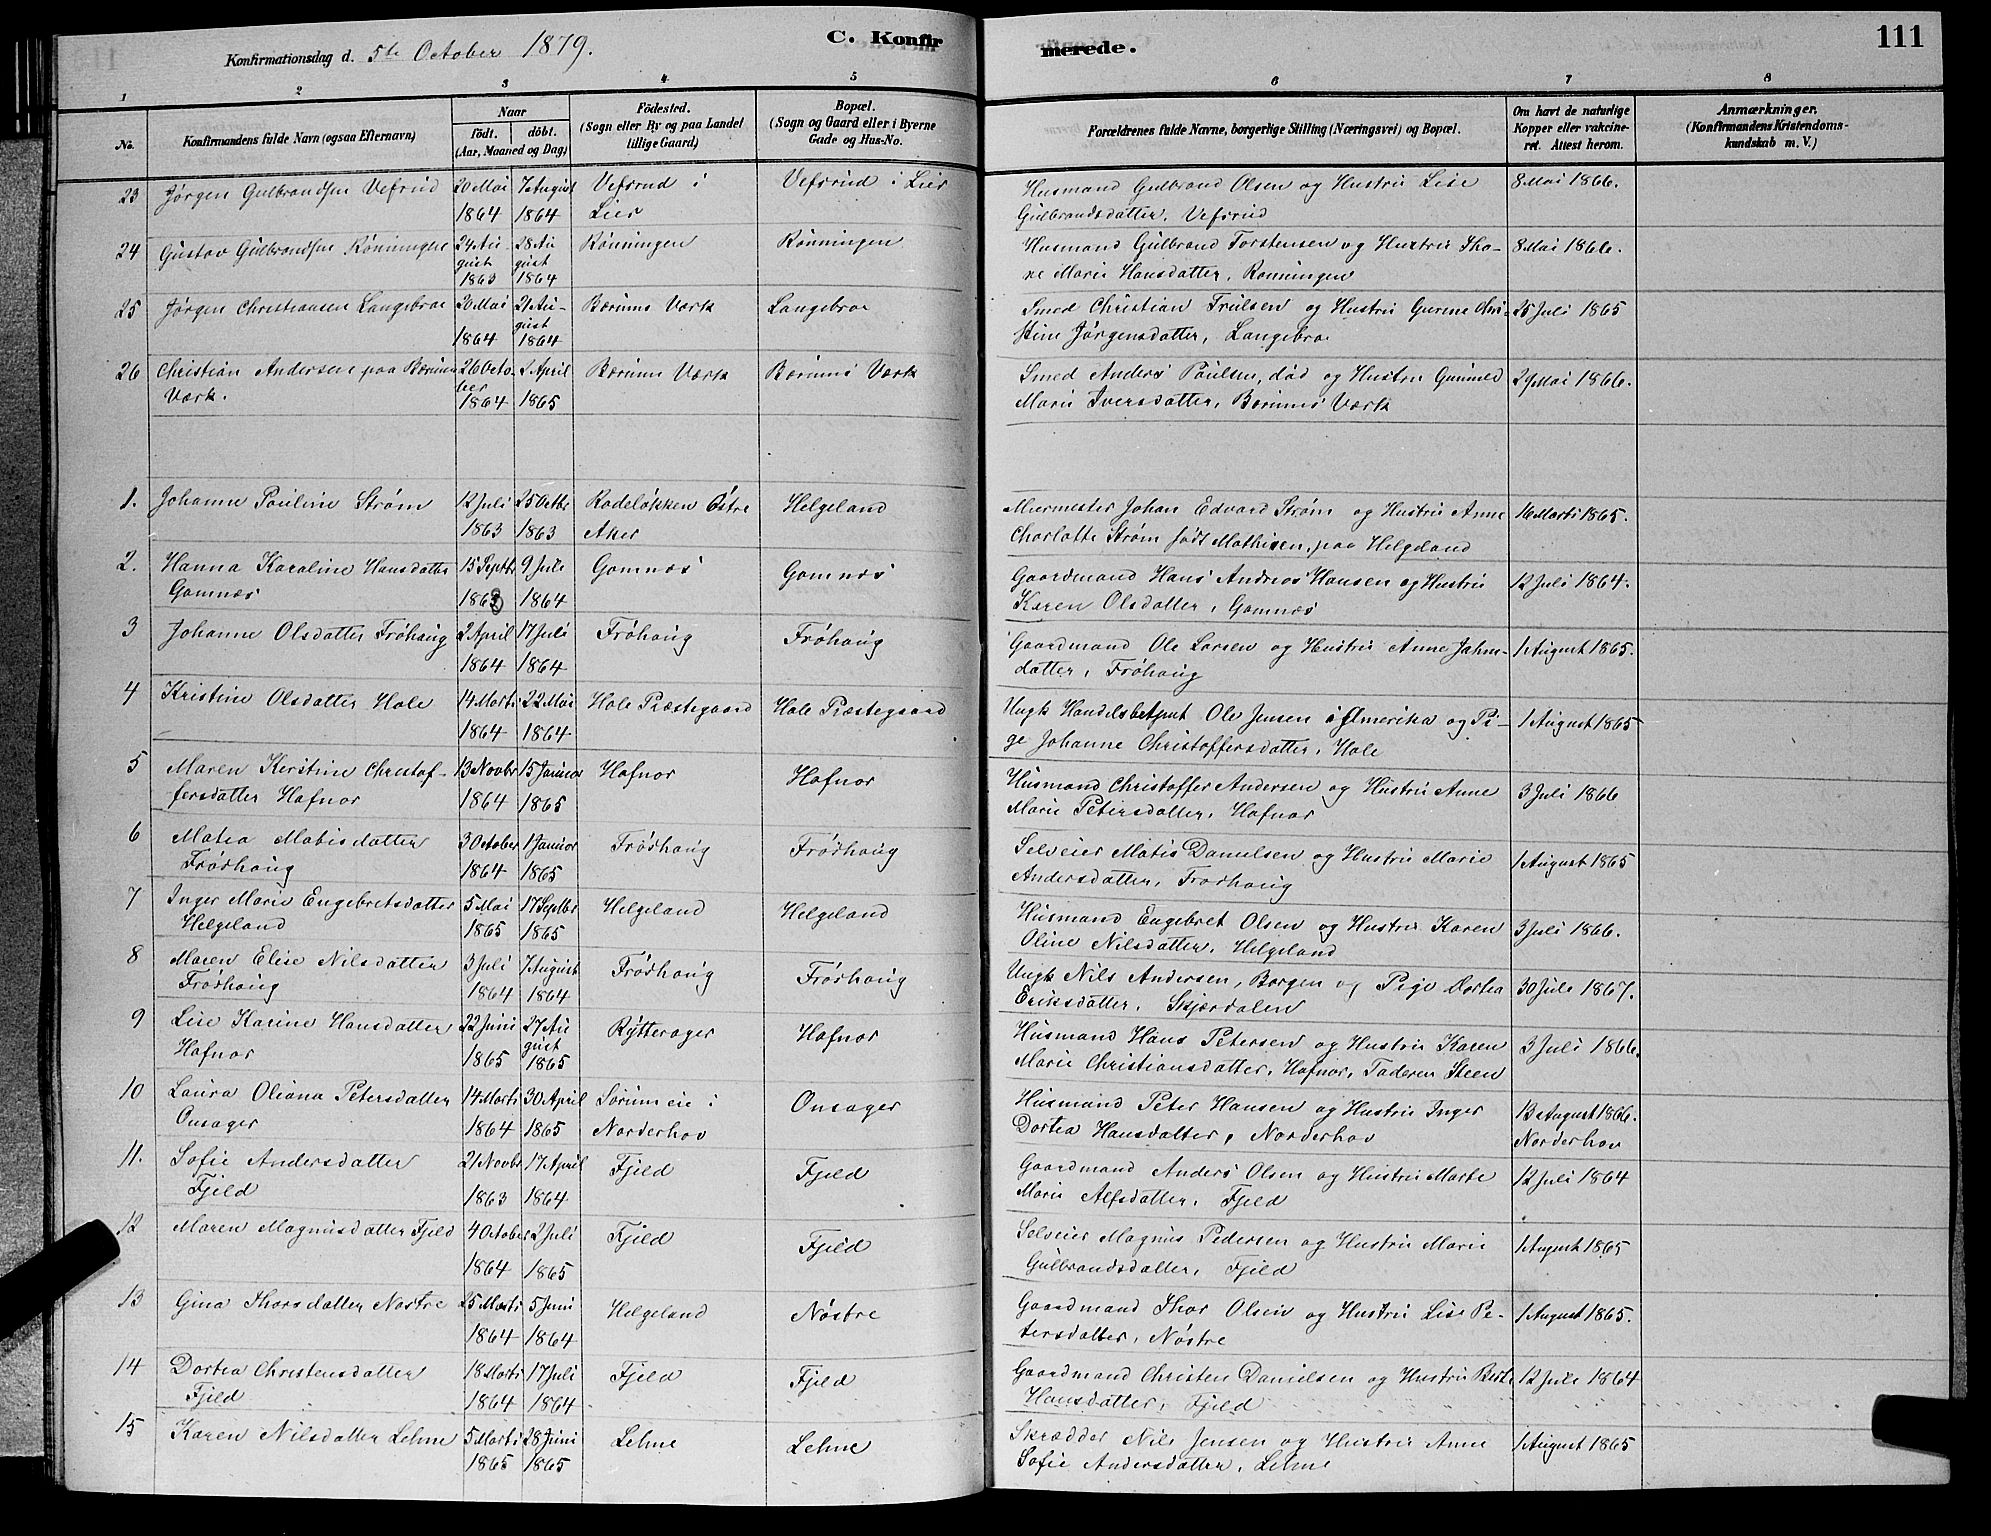 Konfirmationsdag d. 5te October 1879.
C. Konfirmerede.
111
1 2 3 4 5 6 7 8
No.
Konfirmandens fulde Navn (ogsaa Efternavn)
Naar
födt. döbt.
(Aar, Maaned og Dag)
Födested.
(Sogn eller By og paa Landet
tillige Gaard)
Bopæl.
(Sogn og Gaard eller i Byerne
Gade og Hus-No.
Forældrenes fulde Navne, borgerlige Stilling (Næringsvei) og Bopæl.
Om havt de naturlige
Kopper eller vakcine-
ret. Attest herom.
Anmærkninger.
(Konfirmandens Kristendoms-
kundskab m. V.)
23 Jørgen Gulbrandsen Vefsrud 20 Mai 7 August Vefsrud i Vefsrud i Lier Husmand Gulbrand Olsen og Hustru Lise 8 Mai 1866.
1864 1864 Lier Gulbrandsdatter, Vefsrud
24 Gustav Gulbrandsen Rønningen 24 Au- 28 Au Rønningen Rønningen Husmand Gulbrand Torstensen og Hustru Tho- 8 Mai 1866.
gust gust
1863 1864 ne Marie Hansdatter, Rønningen
25 Jørgen Christiansen Langebroe 20 Mai 21 Au- Bærums Værk Langebroe Smed Christian Trulsen og Hustru Gurine Chri- 25 Juli 1865
gust
1864 1864 stine Jørgensdatter, Langebroe
26 Christian Andersen paa Bærums 26 Octo- 2 April Bærums Værk Bærums Værk Smed Anders Paulsen, død og Hustru Gunnild 29 Mai 1866.
Værk. ber
1864 1865 Marie Iversdatter, Bærums Værk
1. Johanne Pauline Strøm 12 Juli 25 Octbr Rodeløkken Østre Helgeland Murmester Johan Edvard Strøm og Hustru Anne 16 Marts 1865.
1863 1863 Aker Charlotte Strøm født Mathisen, paa Helgeland
2. Hanna Karoline Hansdatter 15 Septbr 9 Juli Gomnæs Gomnæs Gaardmand Hans Andreas Hansen og Hustru 12 Juli 1864.
Gomnæs 1863 1864 Karen Olsdatter, Gomnæs
3 Johanne Olsdatter Frøhaug 2 April 17 Juli Frøhaug Frøhaug Gaardmand Ole Larsen og Hustru Anne Johns- 1 August 1865.
1864 1864 datter, Frøhaug
4 Kristine Olsdatter Hole 14 Marts 22 Mai Hole Præstegaard Hole Præstegaard Ungk Handelsbetjent Ole Jensen i Amerika og Pi- 1 August 1865
1864 1864 ge Johanne Christoffersdatter, Hole
5 Maren Kirstine Christof- 13 Novbr 15 Januar Hafnor Hafnor Husmand Christoffer Andersen og Hustru Anne 3 Juli 1866
fersdatter Hafnor 1864 1865 Marie Petersdatter, Hafnor
6 Matea Matisdatter 30 October 1 Januar Frødhaug Frødhaug Selveier Matis Danielsen og Hustru Marie 1 August 1865
Frødhaug 1864 1865 Andersdatter, Frødhaug
7 Inger Marie Engebretsdatter 5 Mai 17 Septbr Helgeland Helgeland Husmand Engebret Olsen og Hustru Karen 3 Juli 1866.
Helgeland 1865 1865 Oline Nilsdatter, Helgeland
8 Maren Elise Nilsdatter 3 Juli 7 August Frødhaug Frødhaug Ungk Nils Andersen, Borgen og Pige Dortea 30 Juli 1867.
Frødhaug 1864 1864 Eriksdatter, Skjærdalen
9 Lise Karine Hansdatter 22 Juni 27 Au Rytterager Hafnor Husmand Hans Petersen og Hustru Karen 3 Juli 1866.
Hafnor 1865 gust 1865 Marie Christiansdatter, Hafnor, Faderen Steen
10 Laura Oliana Petersdatter 14 Marts 30 April Sørum eie i Onsager Husmand Peter Hansen og Hustru Inger 13 August 1866.
Onsager 1864 1865 Norderhov Dortea Hansdatter, Norderhov Norderhov
11. Sofie Andersdatter 21 Novbr 17 April Fjeld Fjeld Gaardmand Anders Olsen og Hustru Marte 12 Juli 1864
Fjeld 1863 1864 Marie Alfsdatter, Fjeld
12 Maren Magnusdatter Fjeld 4 October 2 Juli Fjeld Fjeld Selveier Magnus Pedersen og Hustru Marie 1 August 1865
1864 1865 Gulbrandsdatter, Fjeld
13 Gina Thorsdatter Nøstre 25 Marts 5 Juni Helgeland Nøstre Gaardmand Thor Olsen og Hustru Lise Pe- 1 August 1865.
1864 1864 tersdatter, Nøstre
14 Dortea Christensdatter 18 Marts 17 Juli Fjeld Fjeld Gaardmand Christen Danielsen og Hustru Berte 12 Juli 1864
Fjeld 1864 1864 Hansdatter, Fjeld
15 Karen Nilsdatter Lehne 5 Marts 28 Juni Lehne Lehne Skrædder Nils Jensen og Hustru Anne 1 August 1865
1865 1865 Sofie Andersdatter, Lehne